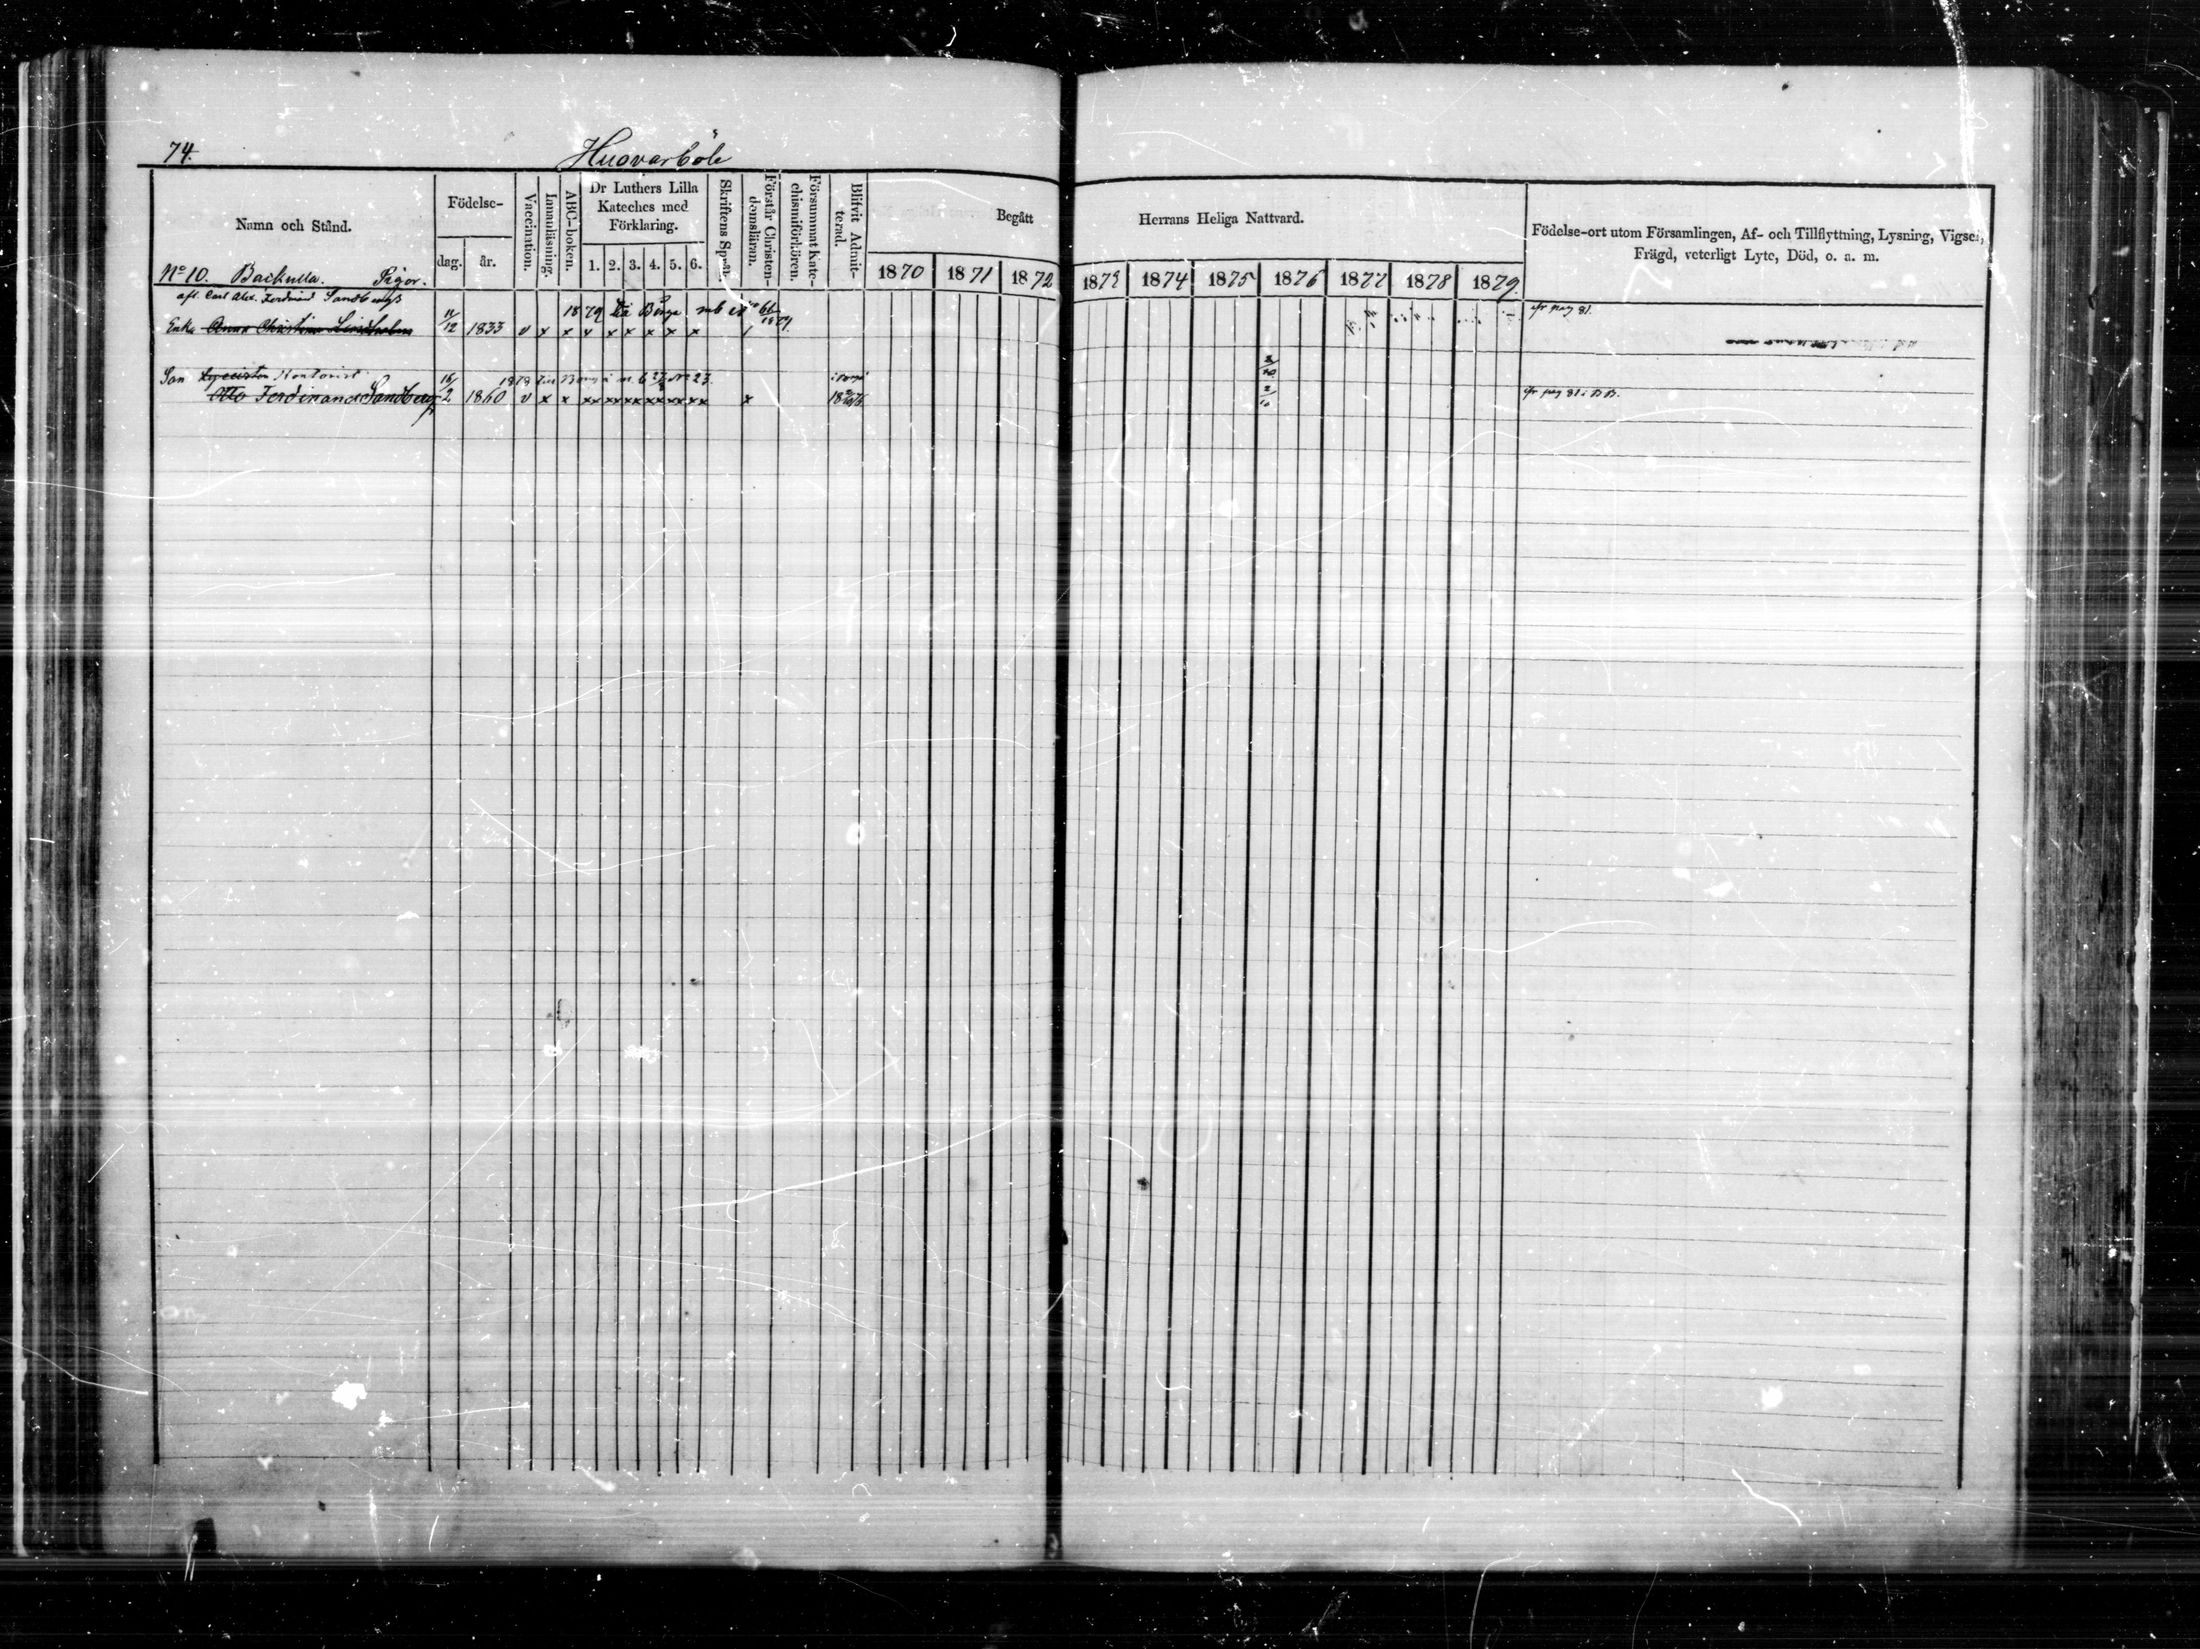 74.
Husvarböle
Namn och Stånd.
Födelse-
dag.
år.
Vaccination.
Innanläsning.
ABC-boken.
Dr Luthers Lilla
Kateches med
Förklaring.
1. 2. 3. 4. 5. 6.
Skriftens Språk.
Förstår Christen-
domsläran.
Försummat Kate-
chismiförhören.
Blifvit Admit-
terad.
Begått
Herrans Heliga Nattvard.
1870 1871 1872 1873 1874 1875 1876 1877 1878 1879.
Födelse-ort utom Församlingen, Af- och Tillflyttning, Lysning, Vigsel,
Frägd, veterligt Lyte, Död, o. a. m.
No 10. Backulla. Pigor.
afl. Carl Alex. Ferdinand Sandbergs
1879 till Borgå
Enka Anna Christina Lindholm 11/12 1833 v x x x x x x x x
cfr pag 81.
Son Lyceisten Kontorist 1878 till Borgå m. b. No 23.
Otto Ferdinand Sandberg 16/2 1860 v x x xx xx xx xx xx xx x
cfr pag 81